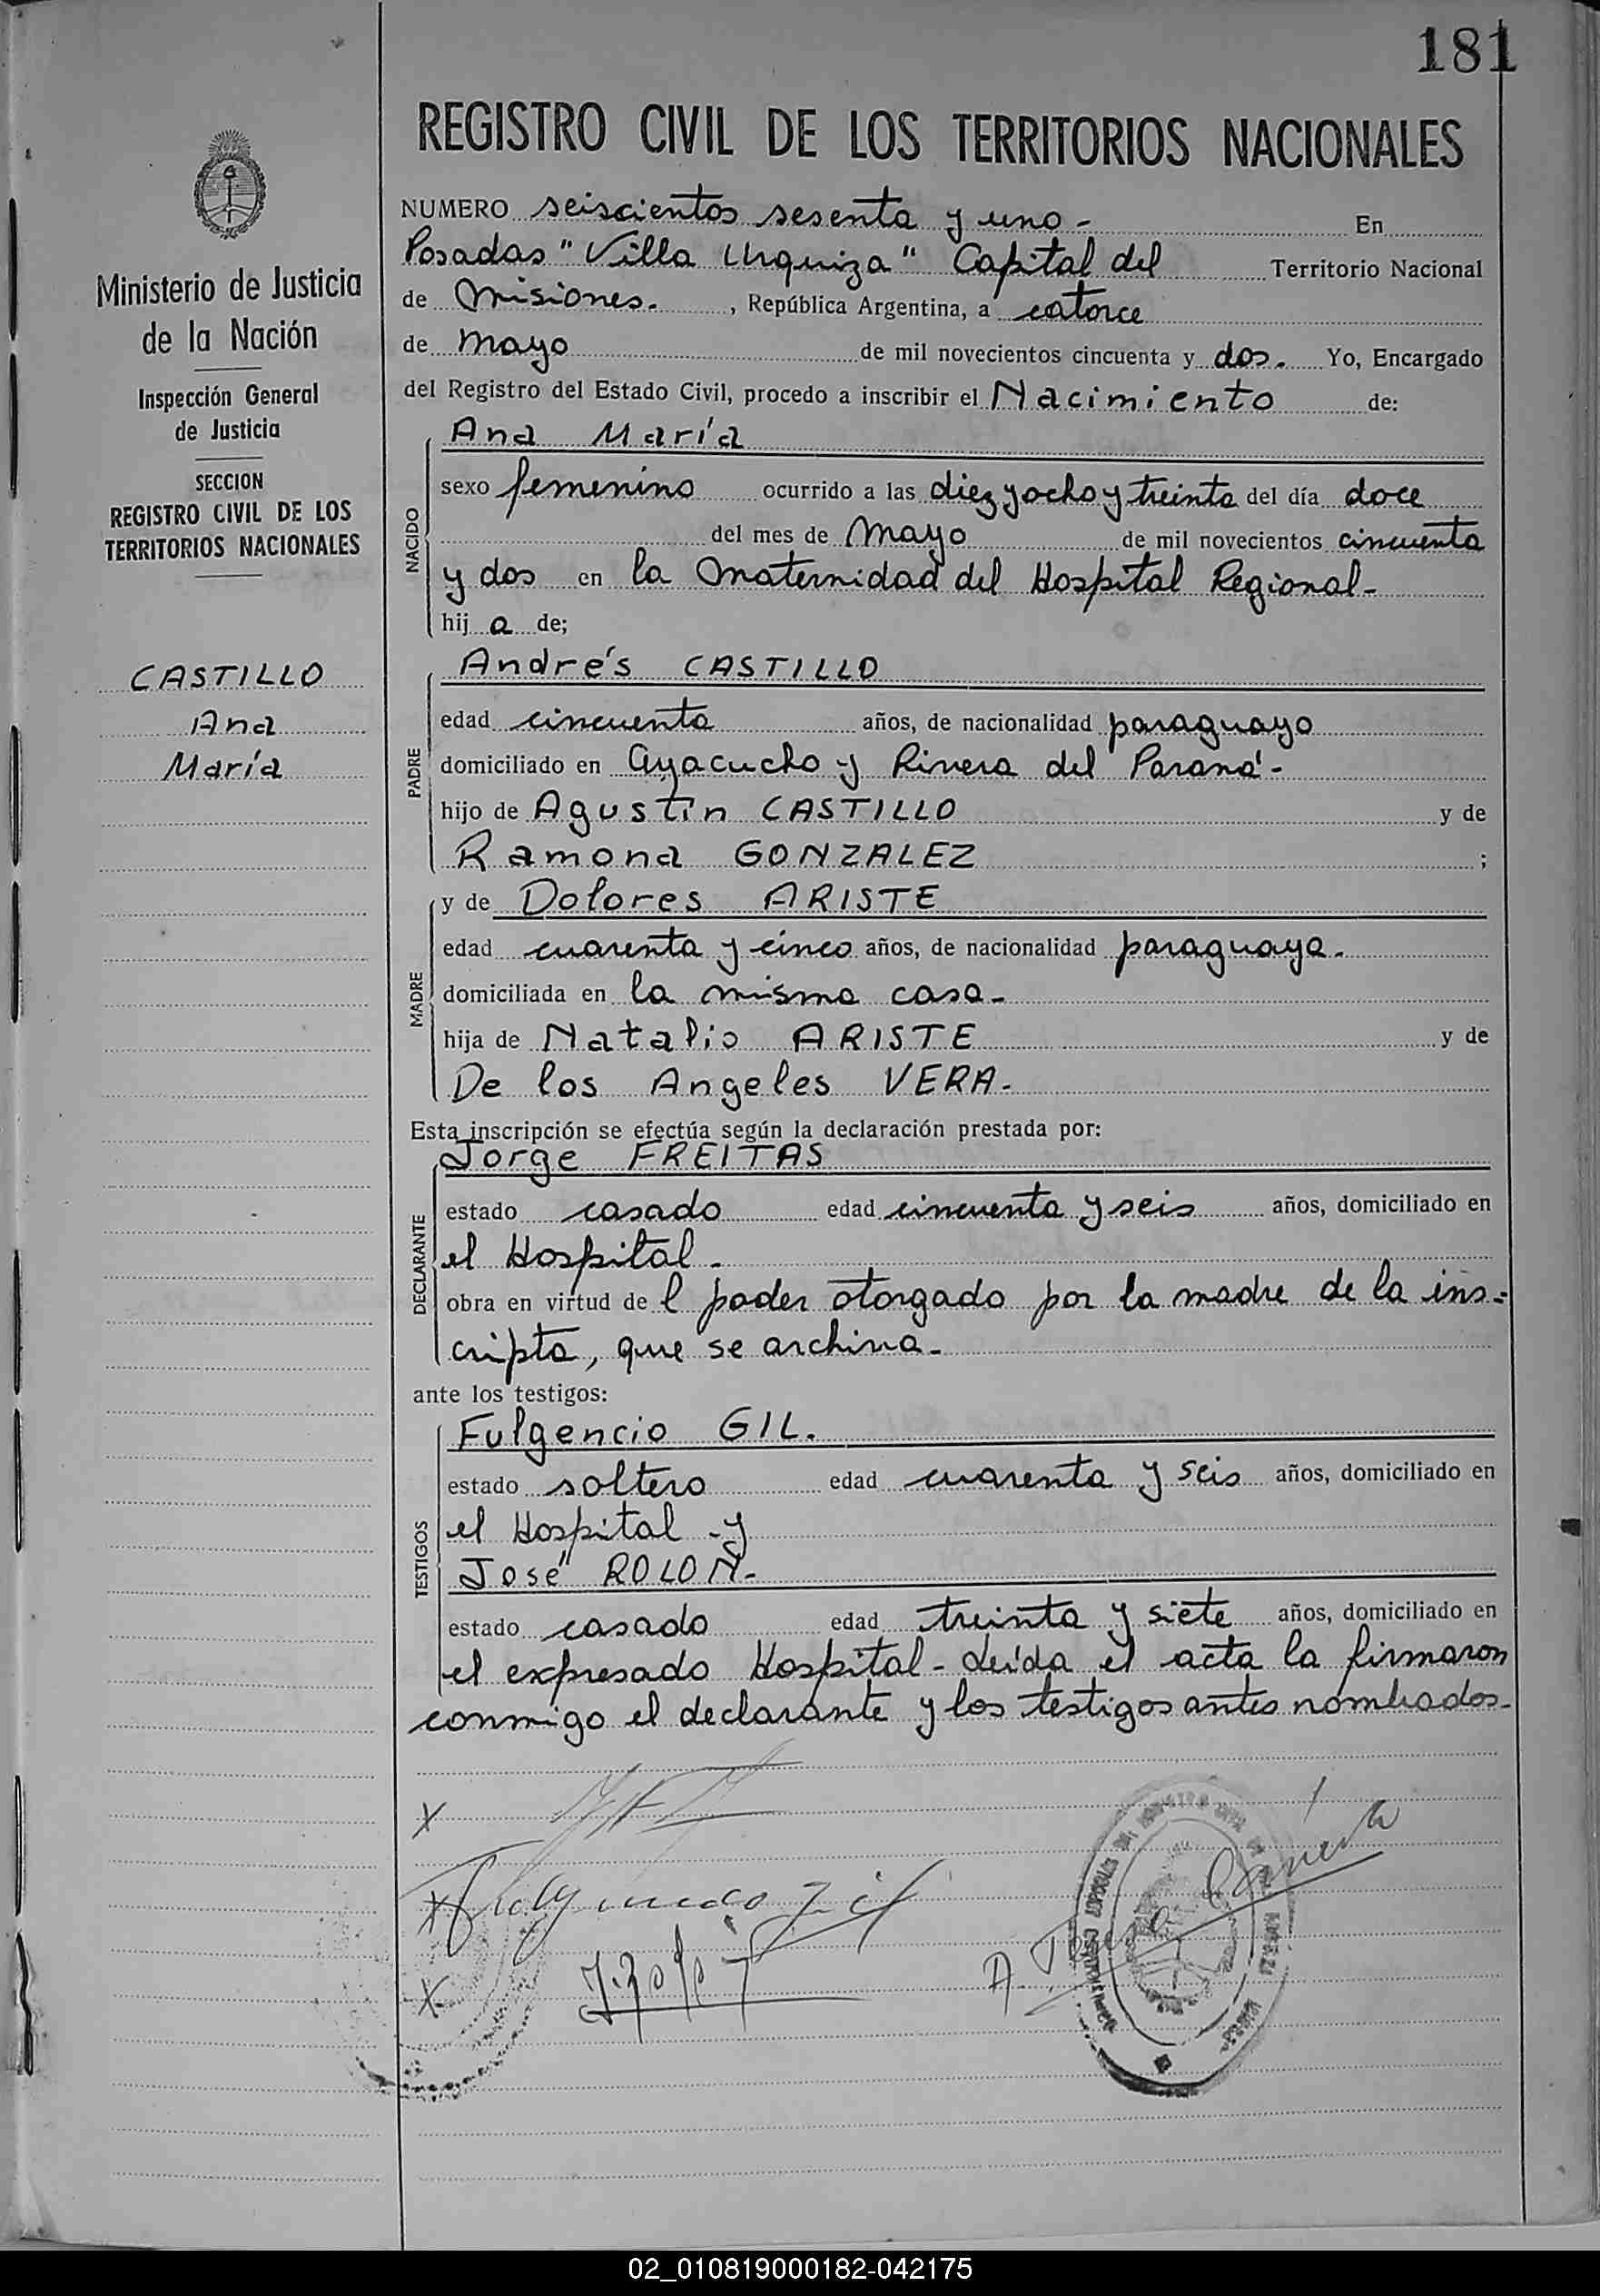 181
REGISTRO CIVIL DE LOS TERRITORIOS NACIONALES
Ministerio de Justicia
de la Nación
Inspección General
de Justicia
SECCION
REGISTRO CIVIL DE LOS
TERRITORIOS NACIONALES
CASTILLO
Ana
María
NUMERO seiscientos sesenta y uno- En
Posadas "Villa Urquiza" Capital del Territorio Nacional
de Misiones. , República Argentina, a catorce
de mayo de mil novecientos cincuenta y dos. Yo, Encargado
del Registro del Estado Civil, procedo a inscribir el Nacimiento de:
NACIDO
Ana María
sexo femenino ocurrido a las diez y ocho y treinta del día doce
del mes de Mayo de mil novecientos cincuenta
y dos en la Maternidad del Hospital Regional-
hij a de;
PADRE
Andrés CASTILLO
edad cincuenta años, de nacionalidad paraguayo
domiciliado en Ayacucho y Rivera del Paraná-
hijo de Agustín CASTILLO y de
Ramona GONZALEZ ;
MADRE
y de Dolores ARISTE
edad cuarenta y cinco años, de nacionalidad paraguaya.
domiciliada en la misma casa-
hija de Natalio ARISTE y de
De los Angeles VERA-
Esta inscripción se efectúa según la declaración prestada por:
DECLARANTE
Jorge FREITAS
estado casado edad cincuenta y seis años, domiciliado en
el Hospital-
obra en virtud de l poder otorgado por la madre de la ins=
cripta, que se archiva-
ante los testigos:
TESTIGOS
Fulgencio GIL.
estado soltero edad cuarenta y seis años, domiciliado en
el Hospital -y
José ROLON-
estado casado edad treinta y siete años, domiciliado en
el expresado Hospital- Leída el acta la firmaron
conmigo el declarante y los testigos antes nombrados-
X
X
X
02_010819000182-042175